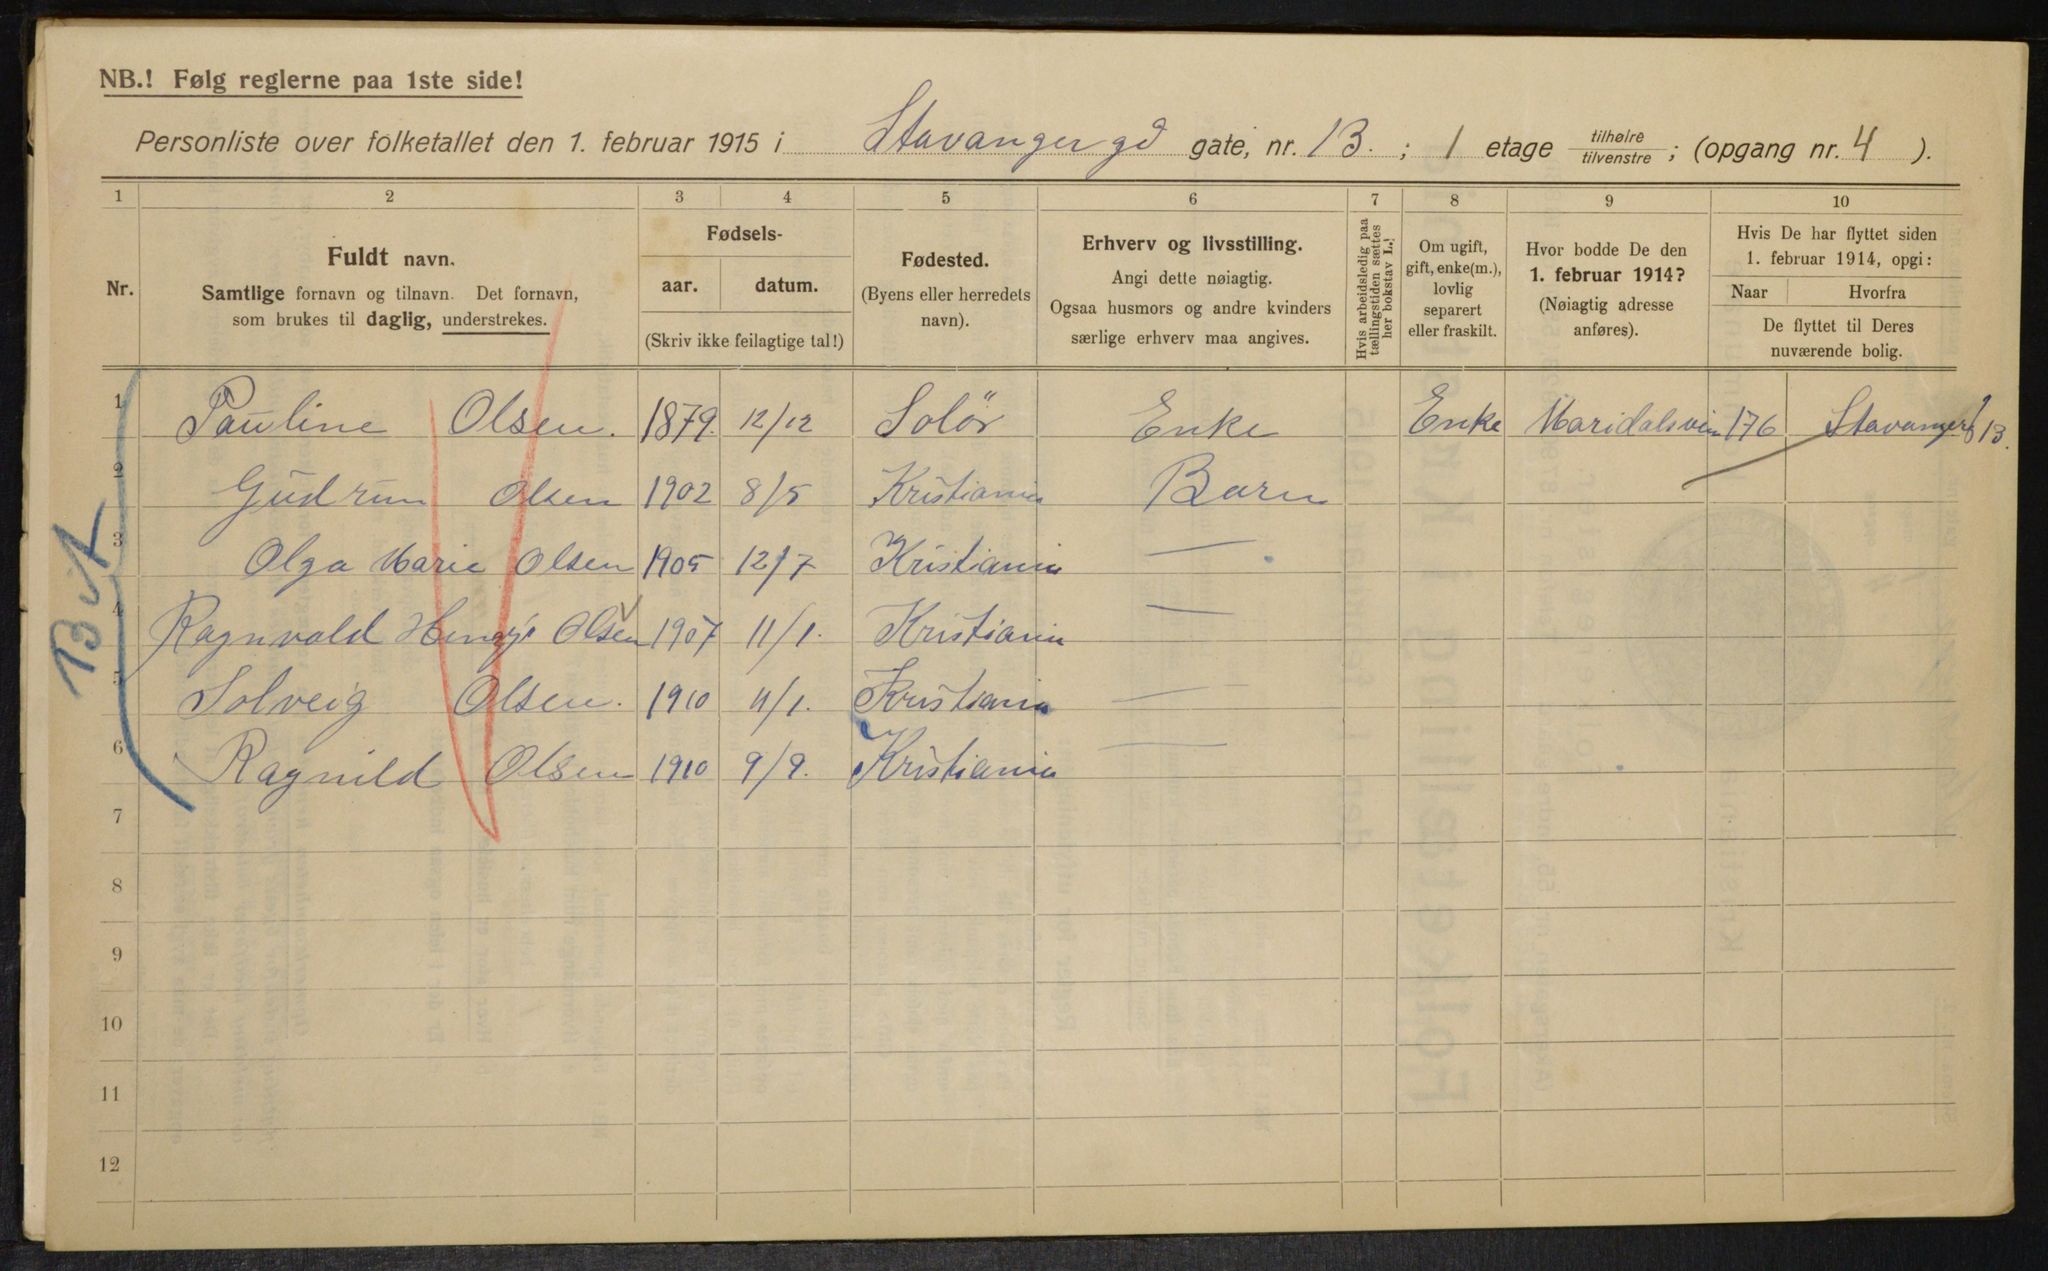 NB.! Følg reglerne paa 1ste side!
Personliste over folketallet den 1. februar 1915 i Stavangergd gate, nr. 13. ; 1 etage tilhøire/tilvenstre ; (opgang nr. 4 ).
1 2 3 4 5 6 7 8 9 10
Nr.
Fuldt navn.
Samtlige fornavn og tilnavn. Det fornavn,
som brukes til daglig, understrekes.
Fødsels-
aar. datum.
(Skriv ikke feilagtige tal!)
Fødested.
(Byens eller herredets
navn).
Erhverv og livsstilling.
Angi dette nøiagtig.
Ogsaa husmors og andre kvinders
særlige erhverv maa angives.
Hvis arbeidsledig paa
tællingstiden sættes
her bokstav L.!
Om ugift,
gift, enke(m.),
lovlig
separert
eller fraskilt.
Hvor bodde De den
1. februar 1914?
(Nøiagtig adresse
anføres).
Hvis De har flyttet siden
1. februar 1914, opgi:
Naar Hvorfra
De flyttet til Deres
nuværende bolig.
1 Pauline Olsen. 1879. 12/12 Solör Enke Enke Maridalsvein 176 Stavangergt 13.
2 Gudrun Olsen 1902 8/5 Kristiania Barn
3 Olga Marie Olsen 1905 12/7 Kristiania —
4 Ragnvald Olsen 1907 11/1. Kristiania —
5 Solveig Olsen. 1910 11/1. Kristiania —
6 Ragnild Olsen 1910 9/9. Kristiania —
7
8
9
10
11
12